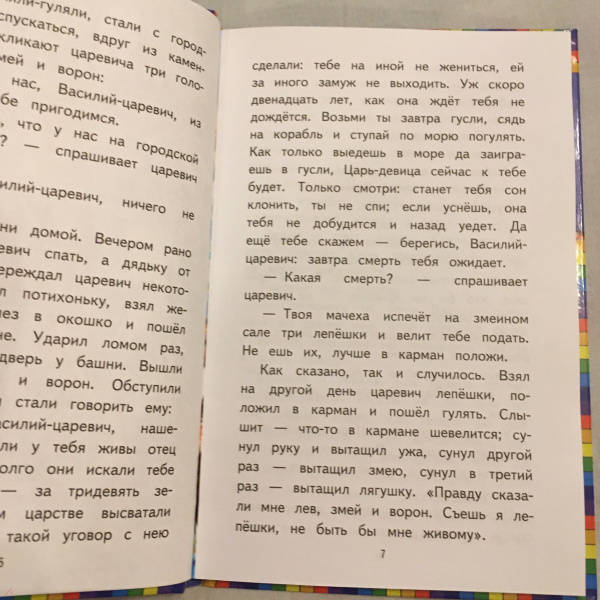 или-гуляли, стали с город-
спускаться, вдруг из камен-
кликают царевича три голо-
мей и ворон:
нас, Василий-царевич, из
бе пригодимся.
, что у нас на городской
? — спрашивает царевич
силий-царевич, ничего не
ни домой. Вечером рано
евич спать, а дядьку от
переждал царевич некото-
л потихоньку, взял же-
лез в окошко и пошёл
не. Ударил ломом раз,
дверь у башни. Вышли
и ворон. Обступили
и стали говорить ему:
асилий-царевич, наше-
ли у тебя живы отец
олго они искали тебе
— за тридевять зе-
м царстве высватали
такой уговор с нею
6
сделали: тебе на иной не жениться, ей
за иного замуж не выходить. Уж скоро
двенадцать лет, как она ждёт тебя не
дождётся. Возьми ты завтра гусли, сядь
на корабль и ступай по морю погулять.
Как только выедешь в море да заигра-
ешь в гусли, Царь-девица сейчас к тебе
будет. Только смотри: станет тебя сон
клонить, ты не спи; если уснёшь, она
тебя не добудится и назад уедет. Да
ещё тебе скажем — берегись, Василий-
царевич: завтра смерть тебя ожидает.
— Какая смерть? — спрашивает
царевич.
— Твоя мачеха испечёт на змеином
сале три лепёшки и велит тебе подать.
Не ешь их, лучше в карман положи.
Как сказано, так и случилось. Взял
на другой день царевич лепёшки, по-
ложил в карман и пошёл гулять. Слы-
шит — что-то в кармане шевелится; су-
нул руку и вытащил ужа, сунул другой
раз — вытащил змею, сунул в третий
раз — вытащил лягушку. «Правду сказа-
ли мне лев, змей и ворон. Съешь я ле-
пёшки, не быть бы мне живому».
7